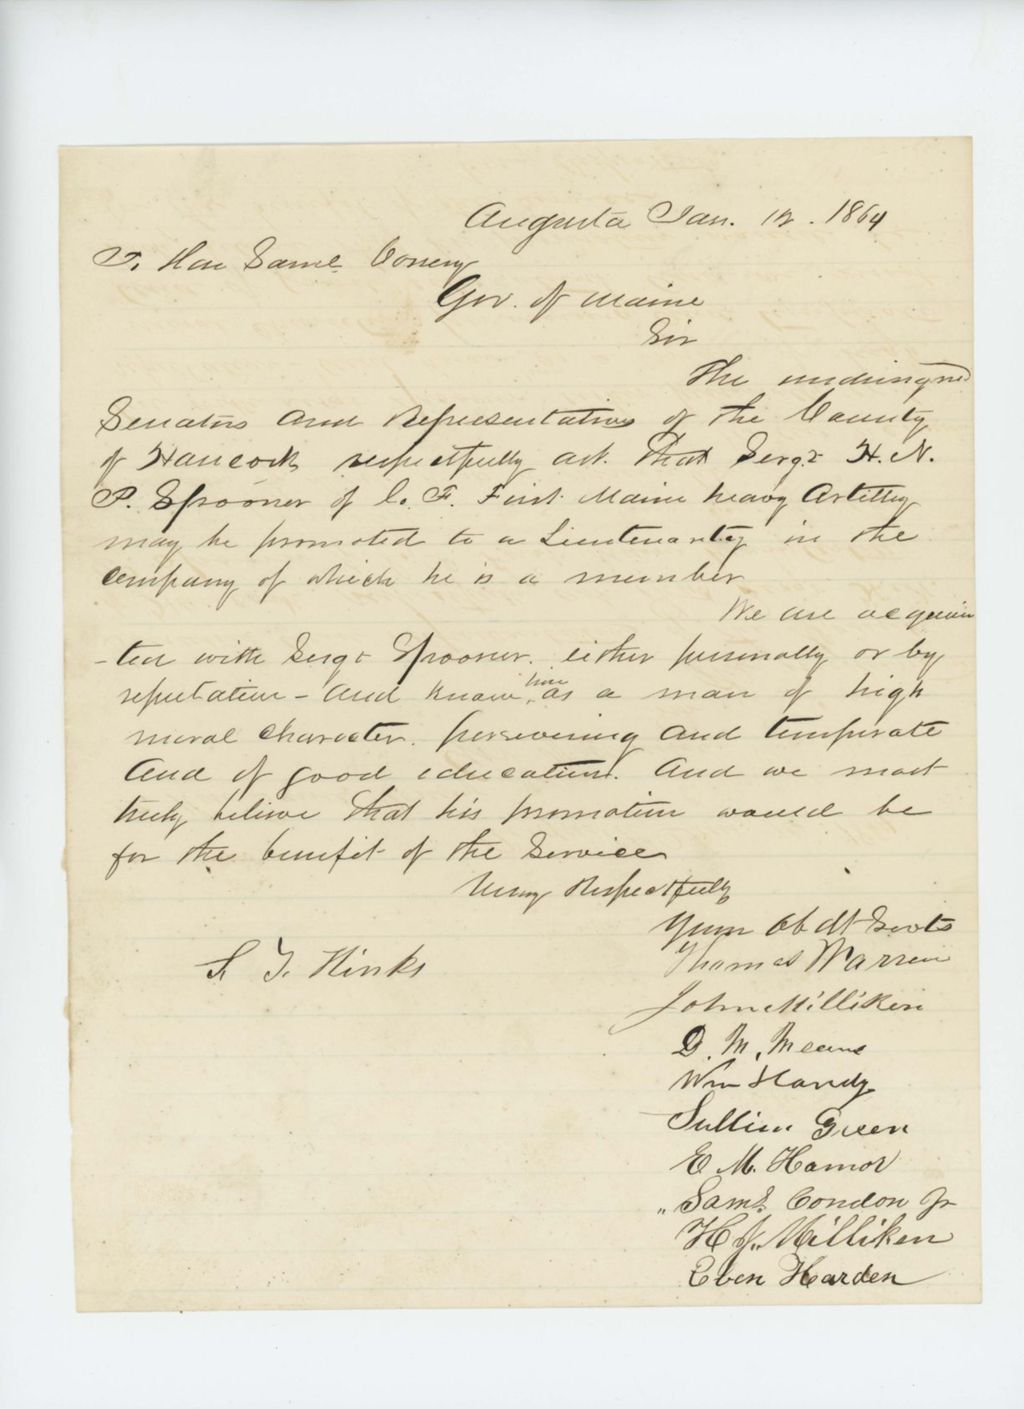 Augusta Jan. 12. 1864
To Hon Saml. Conery
Gov. of Maine
Sir
The undersigned
Senators and Representatives of the County
of Hancock respectfully ask that Sergt H. N.
P. Spooner of Co. F. First Maine heavy Artillery
may be promoted to a Lieutenantcy in the
company of which he is a member
We are acquain
-ted with Sergt Spooner. either personally or by
reputation - and know him as a man of high
moral character. persevering and temperate
and of good education. And we most
truly believe that his promotion would be
for the benefit of the Service
Very Respectfully
Your Ob dt Servts
Thomas Warren
S. T. Hinks
John Milliken
D. M. Means
Wm Handy
Sullivan Green
E. M. Hamor
" Saml. Condon Jr
H. J. Milliken
Eben Harden